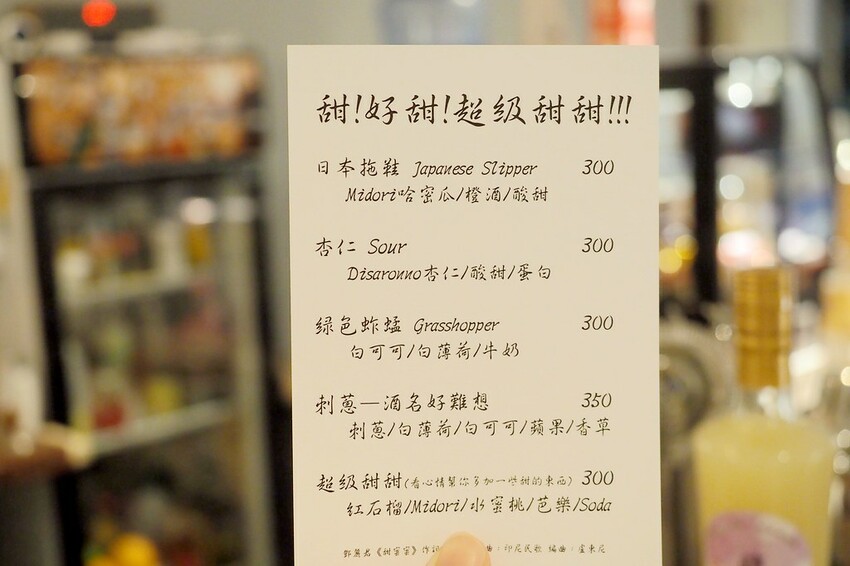 甜!好甜!超级甜甜!!!
日本拖鞋 Japanese Slipper 300
Midori哈密瓜/橙酒/酸甜
杏仁 Sour 300
Disaronno杏仁/酸甜/蛋白
绿色蚱蜢 Grasshopper 300
白可可/白薄荷/牛奶
刺蔥—酒名好難想 350
刺蔥/白薄荷/白可可/蘋果/香草
超级甜甜(看心情幫你多加一些甜的東西) 300
紅石榴/Midori/水蜜桃/芭樂/Soda
鄧麗君《甜蜜蜜》作詞 曲：印尼民歌 編曲：盧東尼